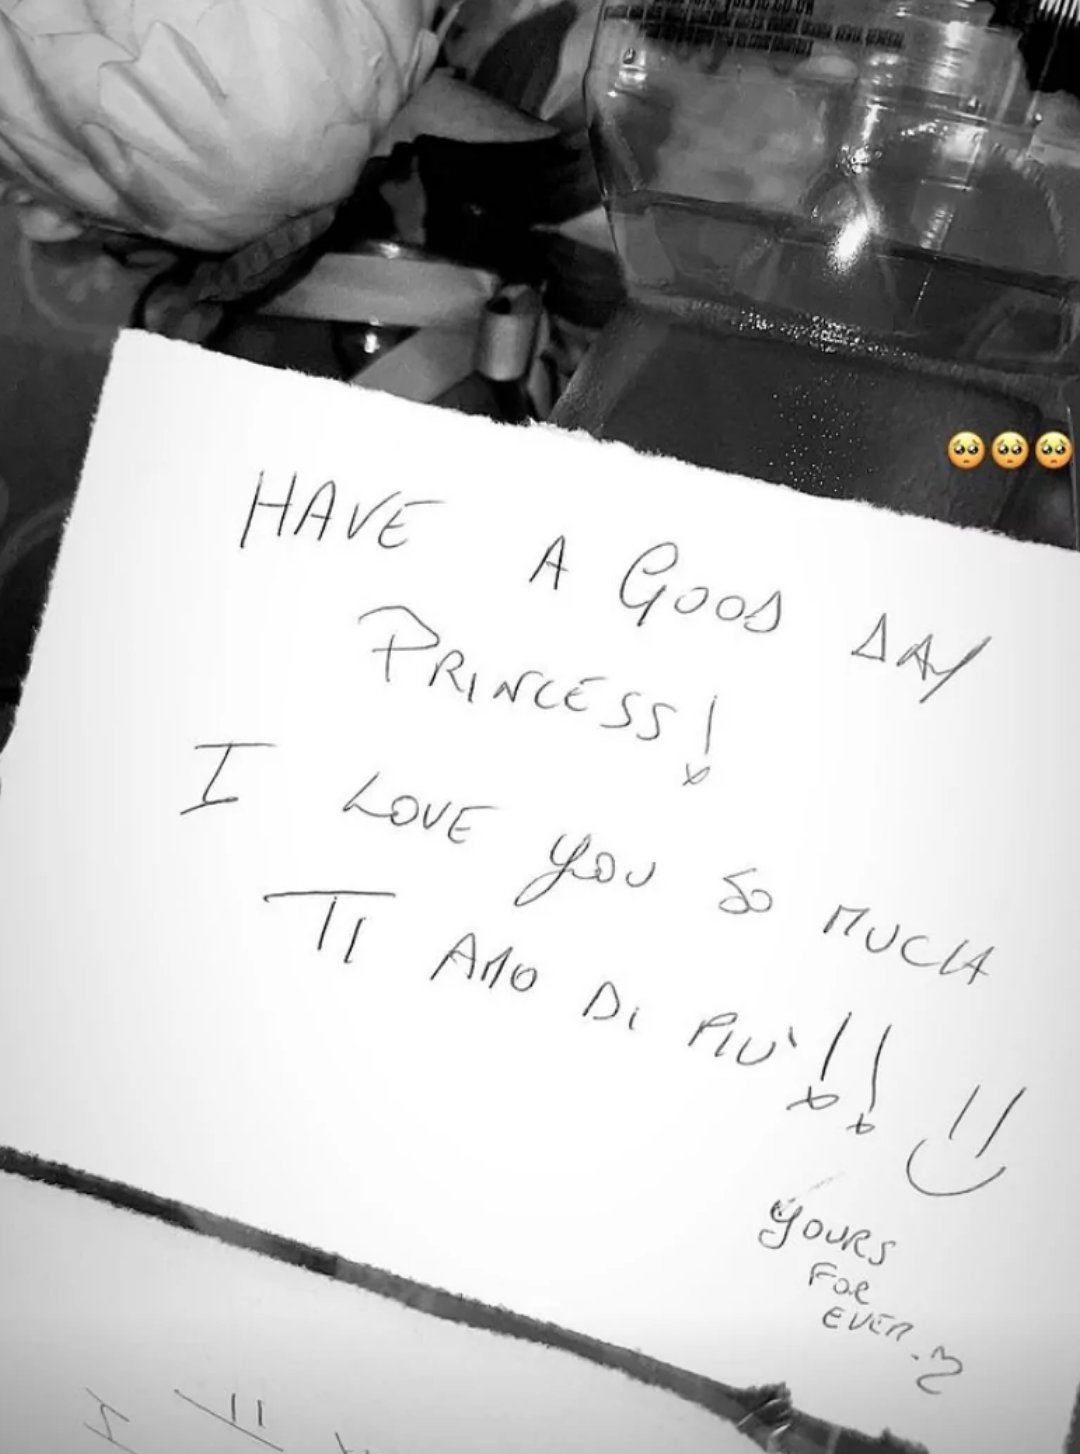 HAVE A GOOD DAY
PRINCESS!
I LOVE YOU SO MUCH
TI AMO DI PIU'!!
YOURS
FOR
EVER.